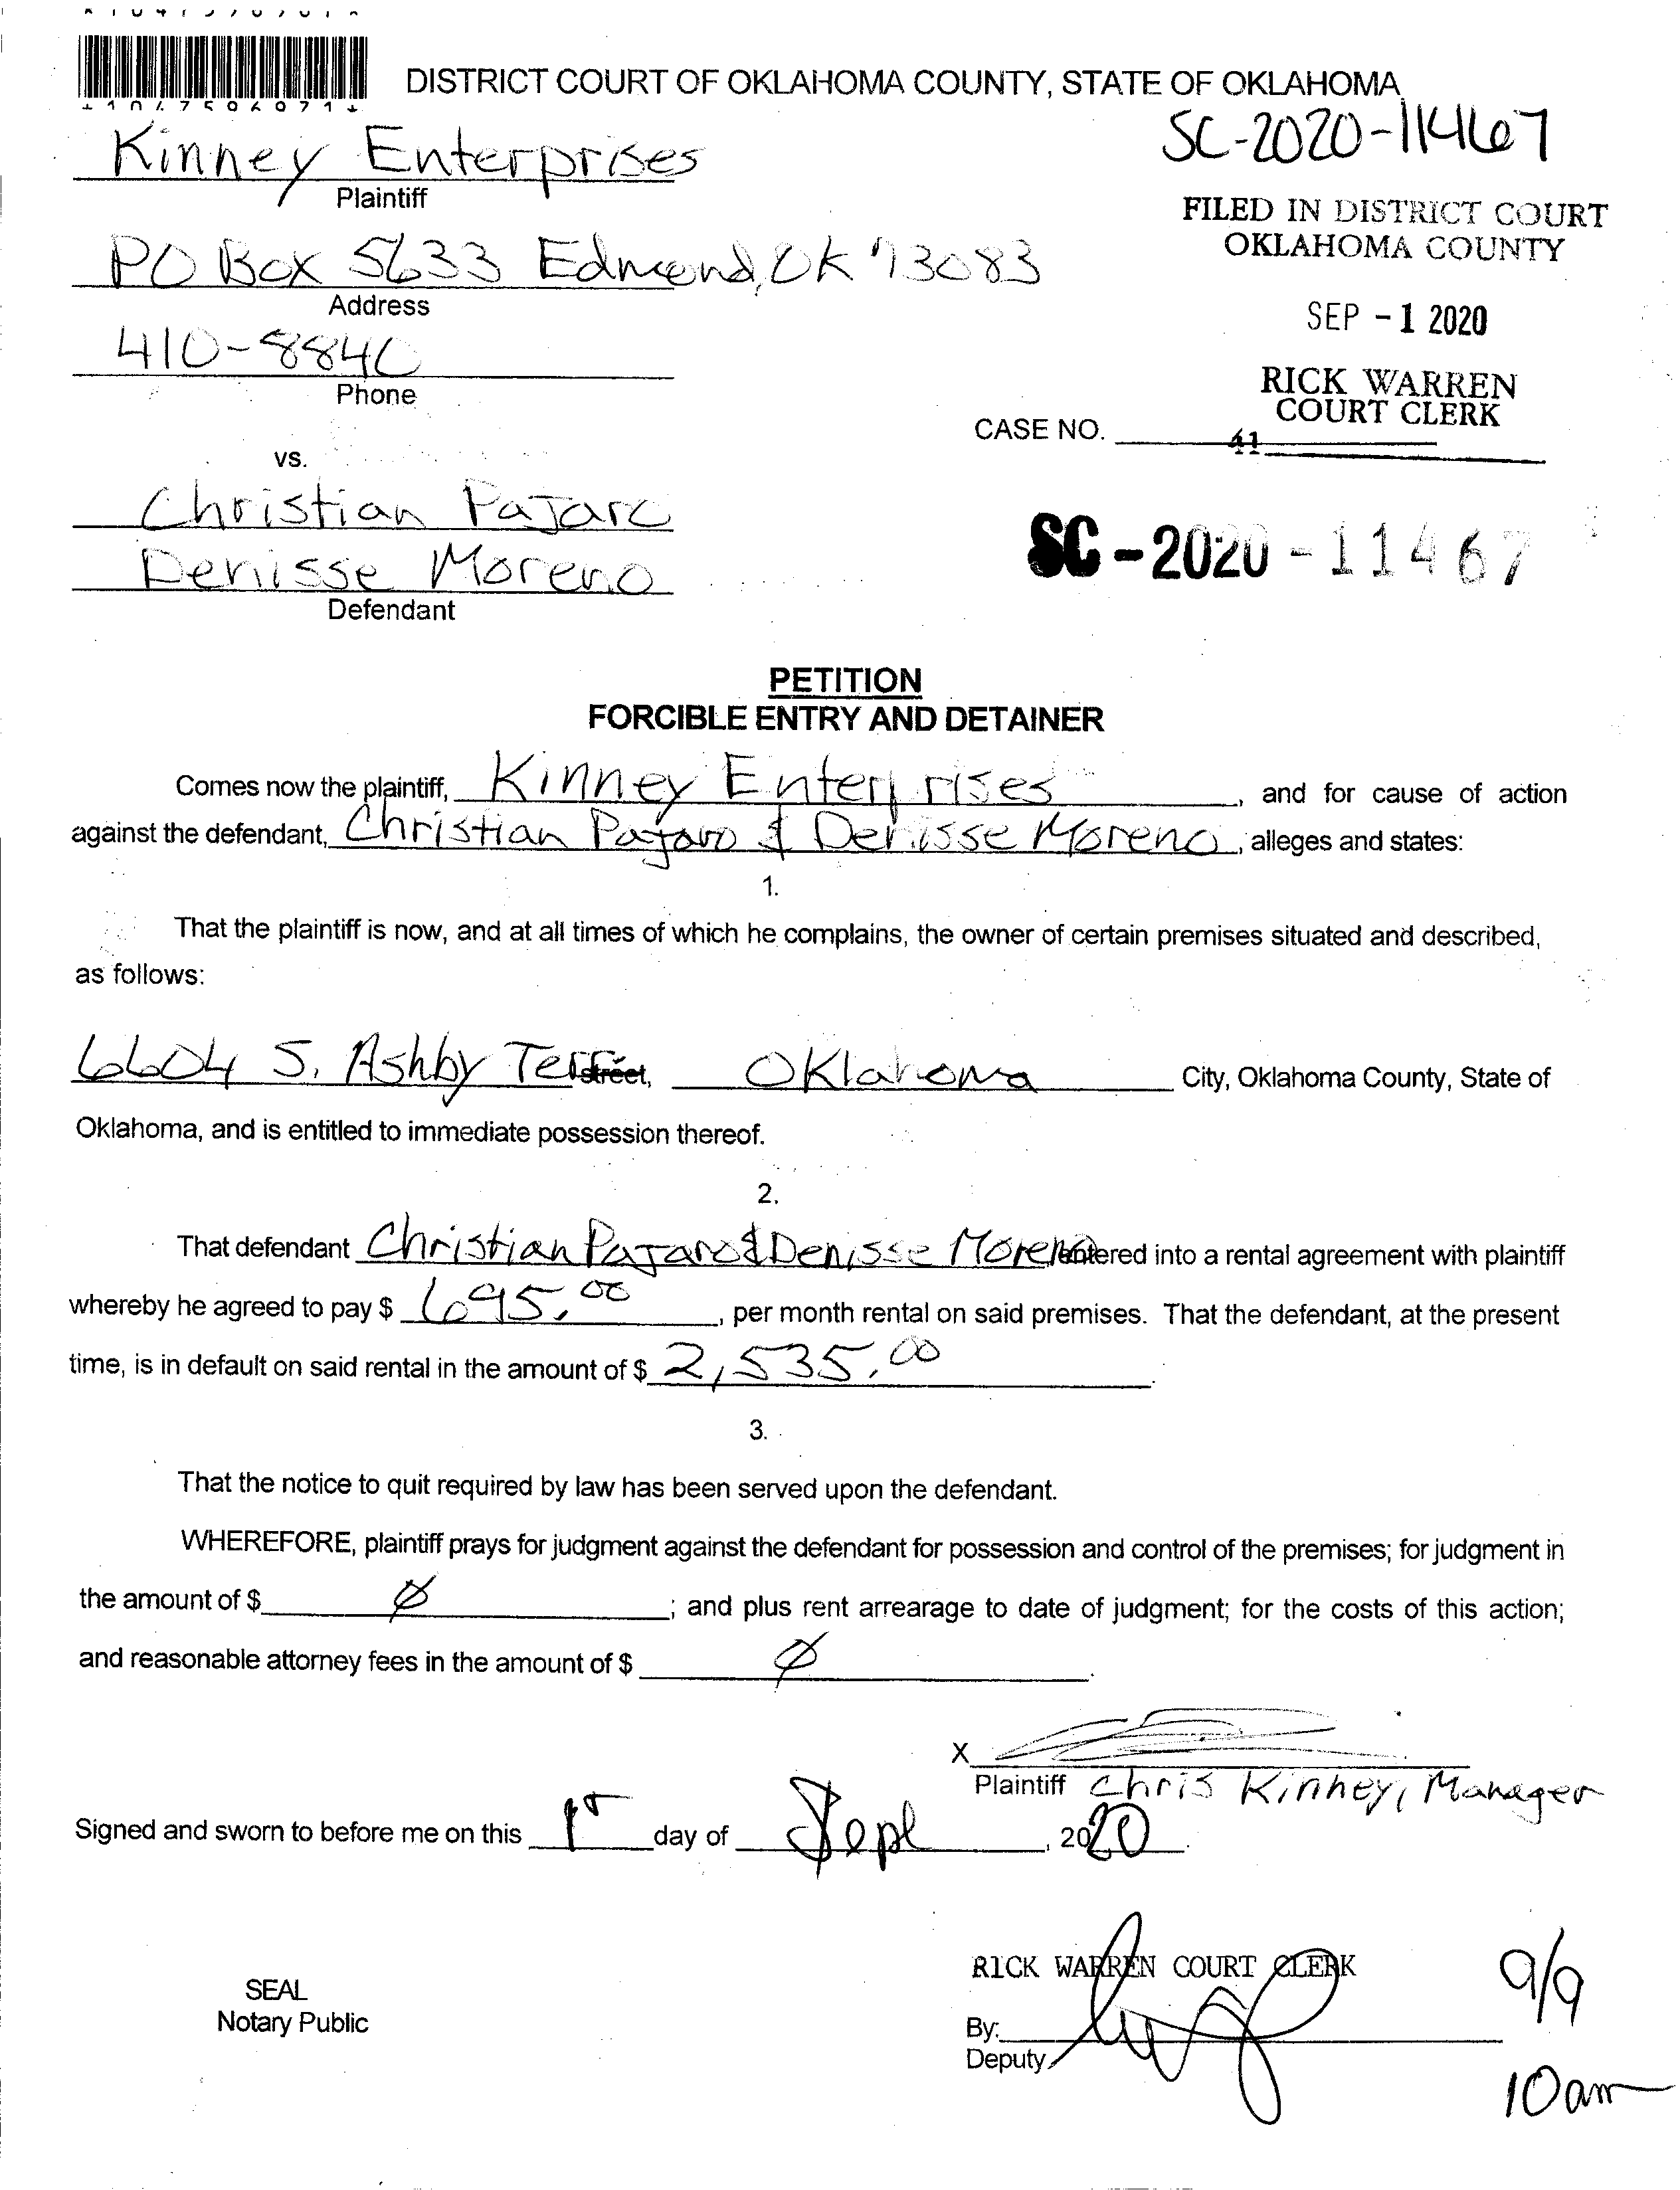 DISTRICT COURT OF OKLAHOMA COUNTY, STATE OF OKLAHOMA
SC-2020-11467
Kinney Enterprises
Plaintiff
FILED IN DISTRICT COURT
OKLAHOMA COUNTY
PO Box 5633 Edmond, OK 73083
Address
SEP - 1 2020
410-8840
Phone
RICK WARREN
COURT CLERK
CASE NO.
41
vs.
Christian Pajaro
SC - 2020 - 11467
Denisse Moreno
Defendant
PETITION
FORCIBLE ENTRY AND DETAINER
Comes now the plaintiff, Kinney Enterprises, and for cause of action
against the defendant, Christian Pajaro & Denisse Moreno, alleges and states:
1.
That the plaintiff is now, and at all times of which he complains, the owner of certain premises situated and described,
as follows:
6604 S. Ashby Terr street, Oklahoma City, Oklahoma County, State of
Oklahoma, and is entitled to immediate possession thereof.
2.
That defendant Christian Pajaro & Denisse Moreno entered into a rental agreement with plaintiff
whereby he agreed to pay $ 695.00, per month rental on said premises. That the defendant, at the present
time, is in default on said rental in the amount of $ 2,535.00.
3.
That the notice to quit required by law has been served upon the defendant.
WHEREFORE, plaintiff prays for judgment against the defendant for possession and control of the premises; for judgment in
the amount of $ Ø; and plus rent arrearage to date of judgment; for the costs of this action;
and reasonable attorney fees in the amount of $ Ø.
X
Plaintiff Chris Kinney, Manager
Signed and sworn to before me on this 1st day of Sept, 2020.
RICK WARREN COURT CLERK
9/9
SEAL
Notary Public
By:
Deputy
10am